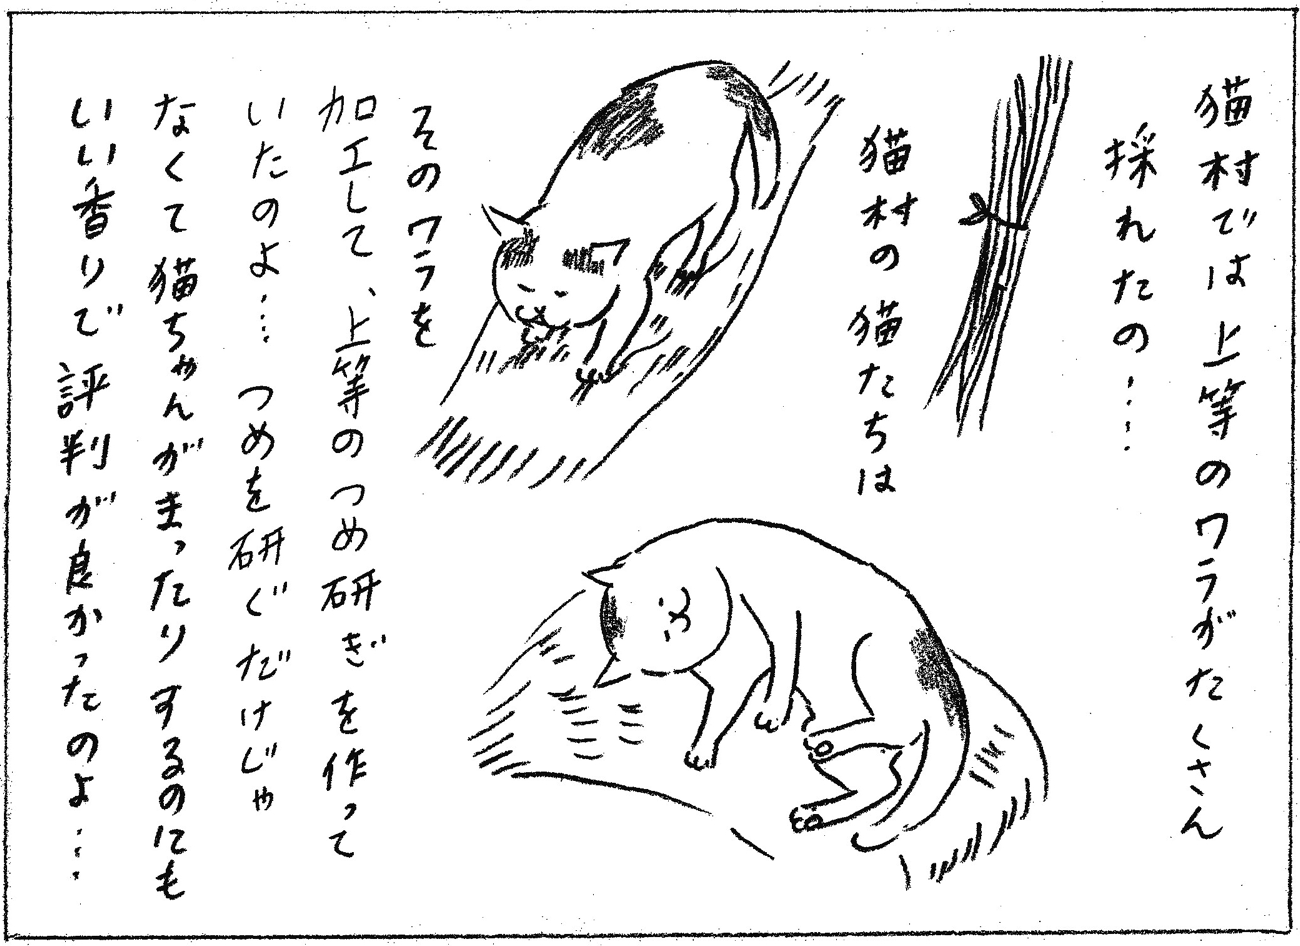 猫村では上等のワラがたくさん
採れたの……
猫村の猫たちは
そのワラを
加工して、上等のつめ研ぎを作って
いたのよ…… つめを研ぐだけじゃ
なくて猫ちゃんがまったりするのにも
いい香りで評判が良かったのよ……